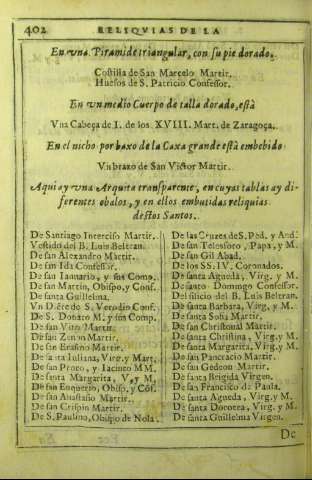 402 RELIQVIAS DE LA
En vna Piramide triangular, con su pie dorado.
Costilla de San Marcelo Martir.
Huesos de S. Patricio Confessor.
En vn medio Cuerpo de talla dorado, està
Vna Cabeça de I. de los XVIII. Mart. de Zaragoça.
En el nicho por baxo de la Caxa grande està embebido
Vn brazo de San Victor Martir.
Aqui ay vna Arquita transparente, en cuyas tablas ay di-
ferentes obalos, y en ellos embutidas reliquias
destos Santos.
De Santiago Interciso Martir.
Vestido del B. Luis Beltran.
De san Alexandro Martir.
De san Ida Confessor.
De san Ianuario, y sus Comp.
De san Martin, Obispo, y Conf.
De santa Guillelma.
Vn Dedo de S. Conf.
De S. Donato M. y sus Comp.
De san Vito Martir.
De san Zenon Martir.
De san Erasmo Martir.
De santa Iuliana, Virg. y Mart.
De san Proto, y Iacinto MM.
De santa Margarita, V. y M.
De san Eugenio, Obisp. y Cōf.
De san Anastasio Martir.
De san Crispin Martir.
De S. Paulino, Obispo de Nola.
De las Cruzes de S. Ped. y And.
De san Telosforo, Papa, y M.
De san Gil Abad.
De los SS. IV. Coronados.
De santa Agueda, Virg. y M.
De santo Domingo Confessor.
Del silicio del B. Luis Beltran.
De santa Barbara, Virg. y M.
De santa Sofia Martir.
De san Christoual Martir.
De santa Christina, Virg. y M.
De santa Margarita, Virg. y M.
De san Pancracio Martir.
De san Gedeon Martir.
De santa Brigida Virgen.
De san Francisco de Paula.
De santa Agueda, Virg. y M.
De santa Dorotea, Virg. y M.
De santa Guillelma Virgen.
De